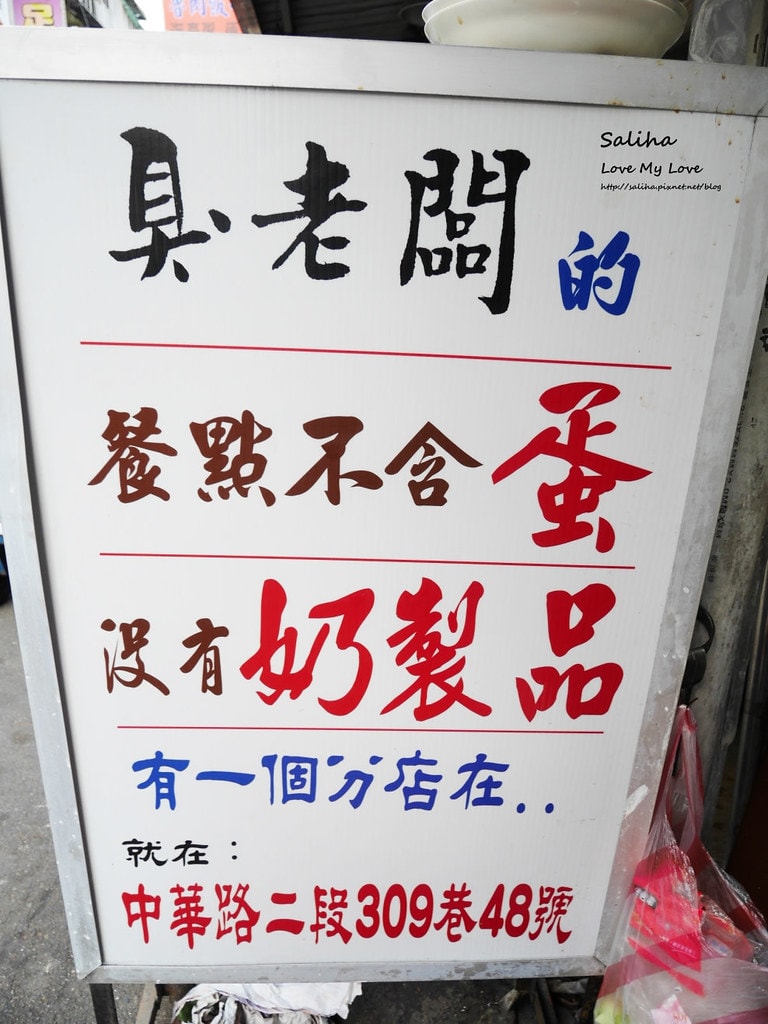 臭老闆的
Saliha
Love My Love
http://saliha.pixnet.net/blog
餐點不含蛋
沒有奶製品
有一個分店在..
就在：
中華路二段309巷48號